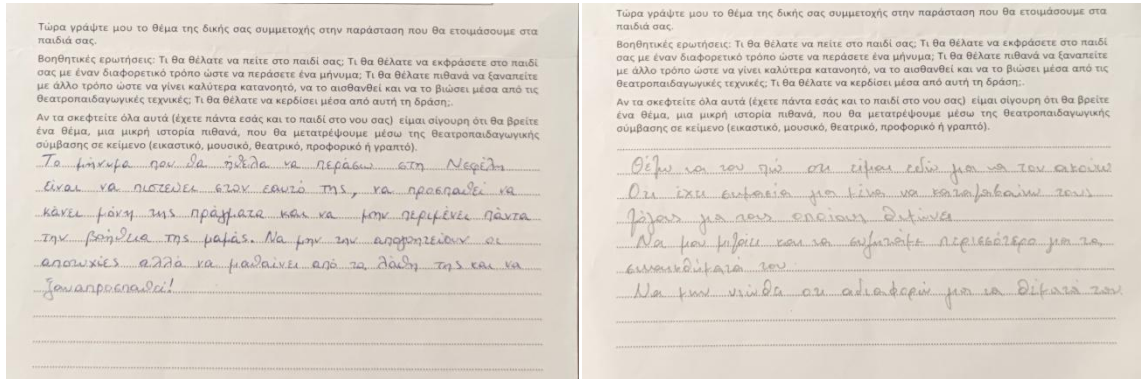 Τώρα γράψτε μου το θέμα της δικής σας συμμετοχής στην παράσταση που θα ετοιμάσουμε στα
παιδιά σας.
Βοηθητικές ερωτήσεις: Τι θα θέλατε να πείτε στο παιδί σας; Τι θα θέλατε να εκφράσετε στο παιδί
σας με έναν διαφορετικό τρόπο ώστε να περάσετε ένα μήνυμα; Τι θα θέλατε πιθανά να ξαναπείτε
με άλλο τρόπο ώστε να γίνει καλύτερα κατανοητό, να το αισθανθεί και να το βιώσει μέσα από τις
θεατροπαιδαγωγικές τεχνικές; Τι θα θέλατε να κερδίσει μέσα από αυτή τη δράση;.
Αν τα σκεφτείτε όλα αυτά (έχετε πάντα εσάς και το παιδί στο νου σας) είμαι σίγουρη ότι θα βρείτε
ένα θέμα, μια μικρή ιστορία πιθανά, που θα μετατρέψουμε μέσω της θεατροπαιδαγωγικής
σύμβασης σε κείμενο (εικαστικό, μουσικό, θεατρικό, προφορικό ή γραπτό).
Το μήνυμα που θα ήθελα να περάσω στη Νεφέλη
είναι να πιστεύει στον εαυτό της, να προσπαθεί να
κάνει μόνη της πράγματα και να μην περιμένει πάντα
την βοήθεια της μαμάς. Να μην την απογοητεύουν οι
αποτυχίες αλλά να μαθαίνει από τα λάθη της και να
ξαναπροσπαθεί!
Τώρα γράψτε μου το θέμα της δικής σας συμμετοχής στην παράσταση που θα ετοιμάσουμε στα
παιδιά σας.
Βοηθητικές ερωτήσεις: Τι θα θέλατε να πείτε στο παιδί σας; Τι θα θέλατε να εκφράσετε στο παιδί
σας με έναν διαφορετικό τρόπο ώστε να περάσετε ένα μήνυμα; Τι θα θέλατε πιθανά να ξαναπείτε
με άλλο τρόπο ώστε να γίνει καλύτερα κατανοητό, να το αισθανθεί και να το βιώσει μέσα από τις
θεατροπαιδαγωγικές τεχνικές; Τι θα θέλατε να κερδίσει μέσα από αυτή τη δράση;.
Αν τα σκεφτείτε όλα αυτά (έχετε πάντα εσάς και το παιδί στο νου σας) είμαι σίγουρη ότι θα βρείτε
ένα θέμα, μια μικρή ιστορία πιθανά, που θα μετατρέψουμε μέσω της θεατροπαιδαγωγικής
σύμβασης σε κείμενο (εικαστικό, μουσικό, θεατρικό, προφορικό ή γραπτό).
Θέλω να του πω οτι είμαι εδώ για να τον ακούω
Οτι έχει σημασία για μένα να καταλαβαίνω τους
λόγους για τους οποίους θυμώνει
Να μου μιλάει και να συζητάμε περισσότερο για τα
συναισθήματά του
Να μην νιώθει οτι αδιαφορώ για τα θέματά του